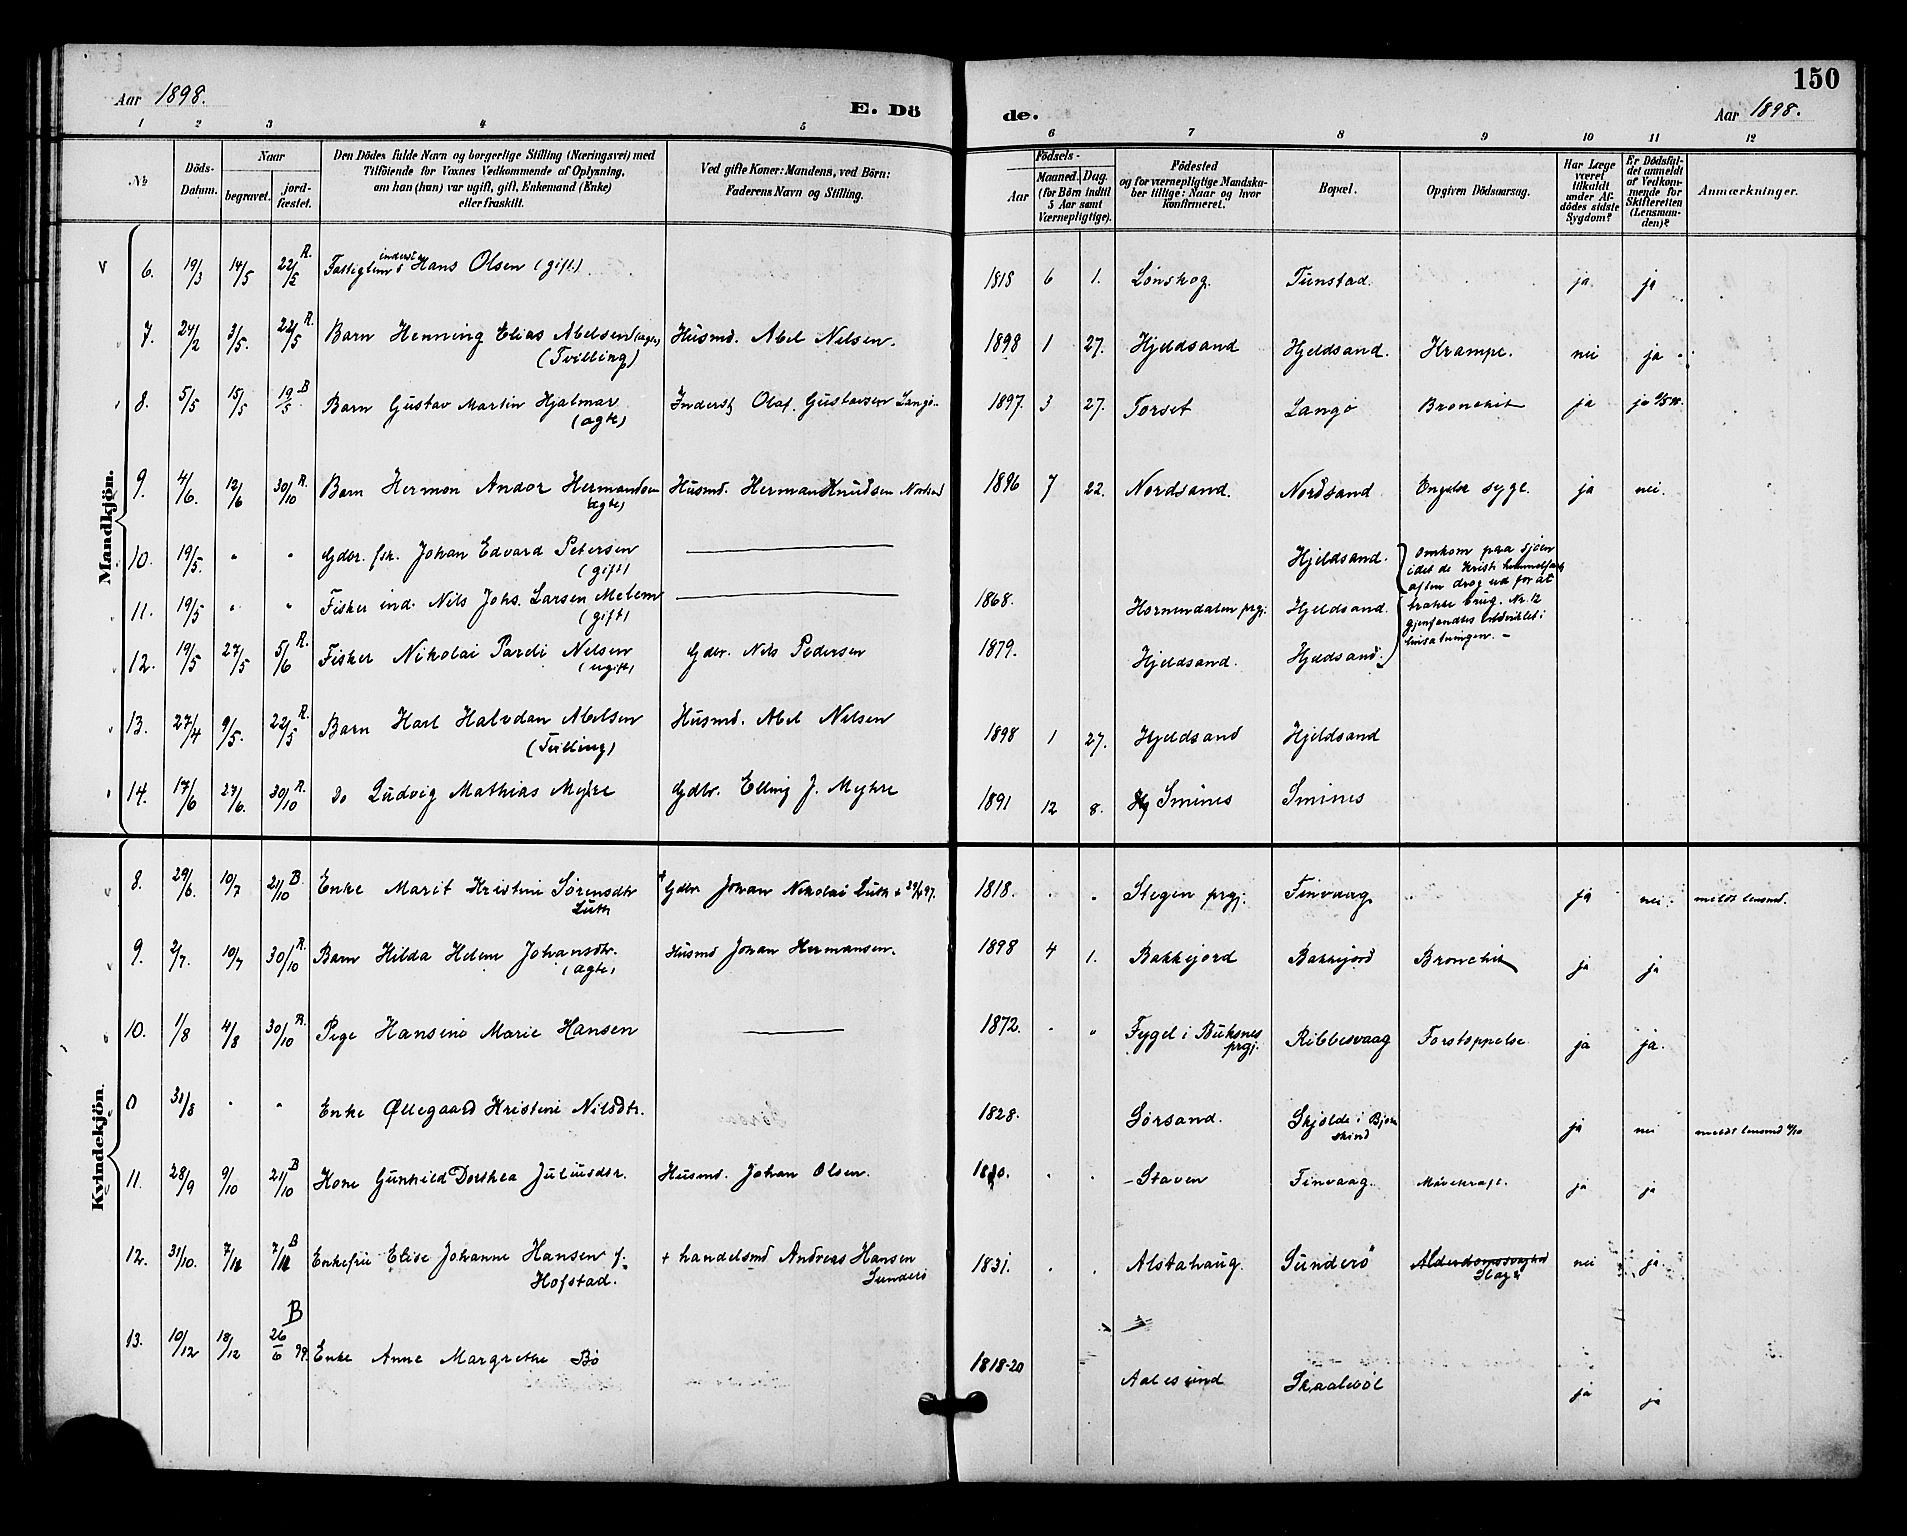 150
Aar 1898.
E. Dö de.
Aar 1898.
1 2 3 4 5 6 7 8 9 10 11 12
No
Döds-Datum.
Naar
begravet.
jord-fæstet.
Den Dödes fulde Navn og borgerlige Stilling (Næringsvei) med
Tilföiende for Voxnes Vedkommende af Oplysning,
om han (hun) var ugift, gift, Enkemand (Enke)
eller fraskilt.
Ved gifte Koner: Mandens, ved Börn:
Faderens Navn og Stilling.
Födsels-
Aar
Maaned. Dag.
(for Börn indtil
5 Aar samt
Værnepligtige).
Födested
og for værnepligtige Mandska-
ber tillige: Naar og hvor
konfirmeret.
Bopæl.
Opgiven Dödsaarsag.
Har Læge
været
tilkaldt
under Af-
dödes sidste
Sygdom?
Er Dödsfal-
det anmeldt
af Vedkom-
mende for
Skifteretten
(Lensman-
den)?
Anmærkninger.
Mandkjön.
6. 19/3 14/5 22/5 R. inderst Hans Olsen (gift) 1818 6 1. Lønskog. Tunstad. ja ja
7. 24/2 3/5. 22/5 R. Barn Henning Elias Abelsen (ægte) Husmd. Abel Nilsen. 1898 1 27. Hjeldsand Hjeldsand. Krampe. nei ja
(Tvilling)
8. 5/5 15/5 19/5 B Barn Gustav Martin Hjalmar Inderst Olaf Gustavsen Langø. 1897. 3 27. Torset Langø Bronchit ja ja
(ægte)
9. 4/6. 12/6 30/10 R. Barn Herman Andor Hermansen Husmd. Herman Knudsen Nordsand 1896 7 22. Nordsand. Nordsand Engelsk syge. ja nei.
(ægte)
10. 19/5. " " Gdbr. fsk. Johan Edvard Petersen — Hjeldsand. omkom paa sjøen
(gift) idet de Kristi himmelfarts
aften drog ud for at
11. 19/5 " " Fisker ind. Nils Johs. Larsen Melem — 1868. Hornendalen prgj. Hjeldsand. trække brug. Nr. 12
(gift) gjenfandtes indviklet i
12. 19/5 27/5 5/6 R. Fisker Nikolai Pareli Nilsen Gdbr. Nils Pedersen 1879. Hjeldsand. Hjeldsand.
(ugift)
13. 27/4 9/5. 22/5 R. Barn Karl Halvdan Abelsen Husmd. Abel Nilsen 1898 1 27. Hjeldsand Hjeldsand
(Tvilling)
14. 17/6 27/6. 30/10 R. Do Ludvig Mathias Myhre Gdbr. Elling J. Myhre 1891 12 8. Smines Smines
Kvindekjön.
8. 29/6. 10/7 21/10 B. Enke Marit Kristine Sørensdtr + Gdbr Johan Nikolai Luth 1818. " " Stegen prgj. Finvaag ja nei meldt lensmd.
Luth
9. 2/7. 10/7 30/10 R. Barn Hilda Helene Johansdtr. Husmd Johan Hermansen. 1898 4 1. Bakkejord Bakkejord Bronchit ja ja
(ægte)
10. 1/8 4/8 30/10 R. Pige Hansine Marie Hansen — 1872. " " Fygel i Buksnes Ribbesvaag Forstoppelse ja ja.
prgj.
0 31/8 " " Enke Øllegaard Kristine Nilsdtr. 1828. Sørsand. Skjolde i Bjørn ja nei meldt lensmd
skind
11. 28/9 9/10 21/10 B Kone Gunhild Dorthea Juliusdtr. Husmd. Johan Olsen. Staven Finvaag. Mavekræft. ja ja
12. 31/10. 7/11 7/11 B Enkefru Elise Johanne Hansen f. + handelsmd Andreas Hansen 1831. Alstahaug. Sunderø Alderdomssvaghed nei ja.
Hofstad. Sunderø Slag
13. 10/12 18/12 26/6 99. B Enke Anne Margrethe Bø 1818-20 Aalesund Skaalebøl ja ja